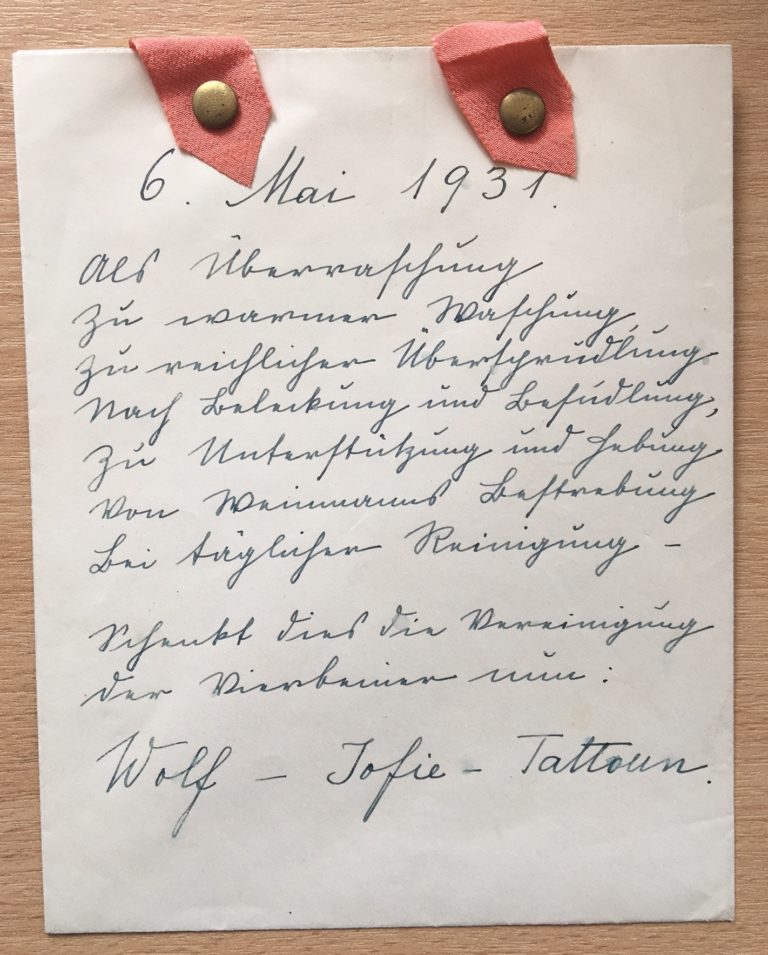 6. Mai 1931.
Als Überraschung
Zu warmer Waschung,
Zu reichlicher Übersprudlung
Nach Beleckung und Besudlung,
Zu Unterstützung und Hebung
Von Weinmanns Bestrebung
Bei täglicher Reinigung –
Schenkt dies die Vereinigung
der Vierbeiner nun:
Wolf – Jofie – Tattoun.